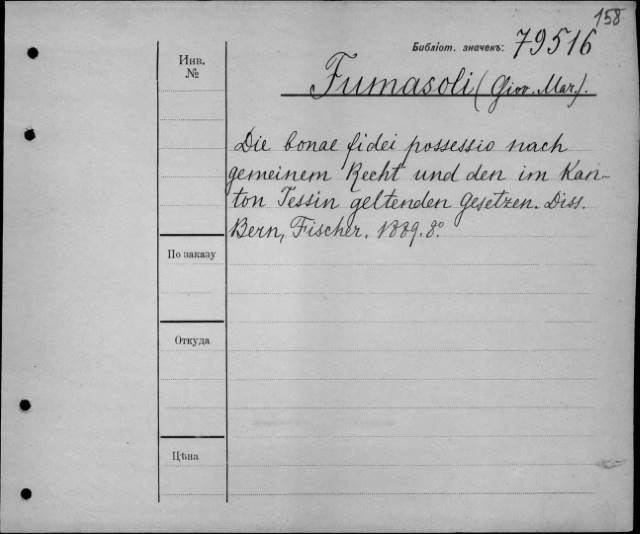 158
Библіот. значекъ: 79516
Инв.
№
Fumasoli (Giov. Mar.).
Die bonae fidei possessio nach
gemeinem Recht und den im Kan-
ton Tessin geltenden Gesetzen. Diss.
Bern, Fischer. 1889. 8º.
По заказу
Откуда
Цѣна